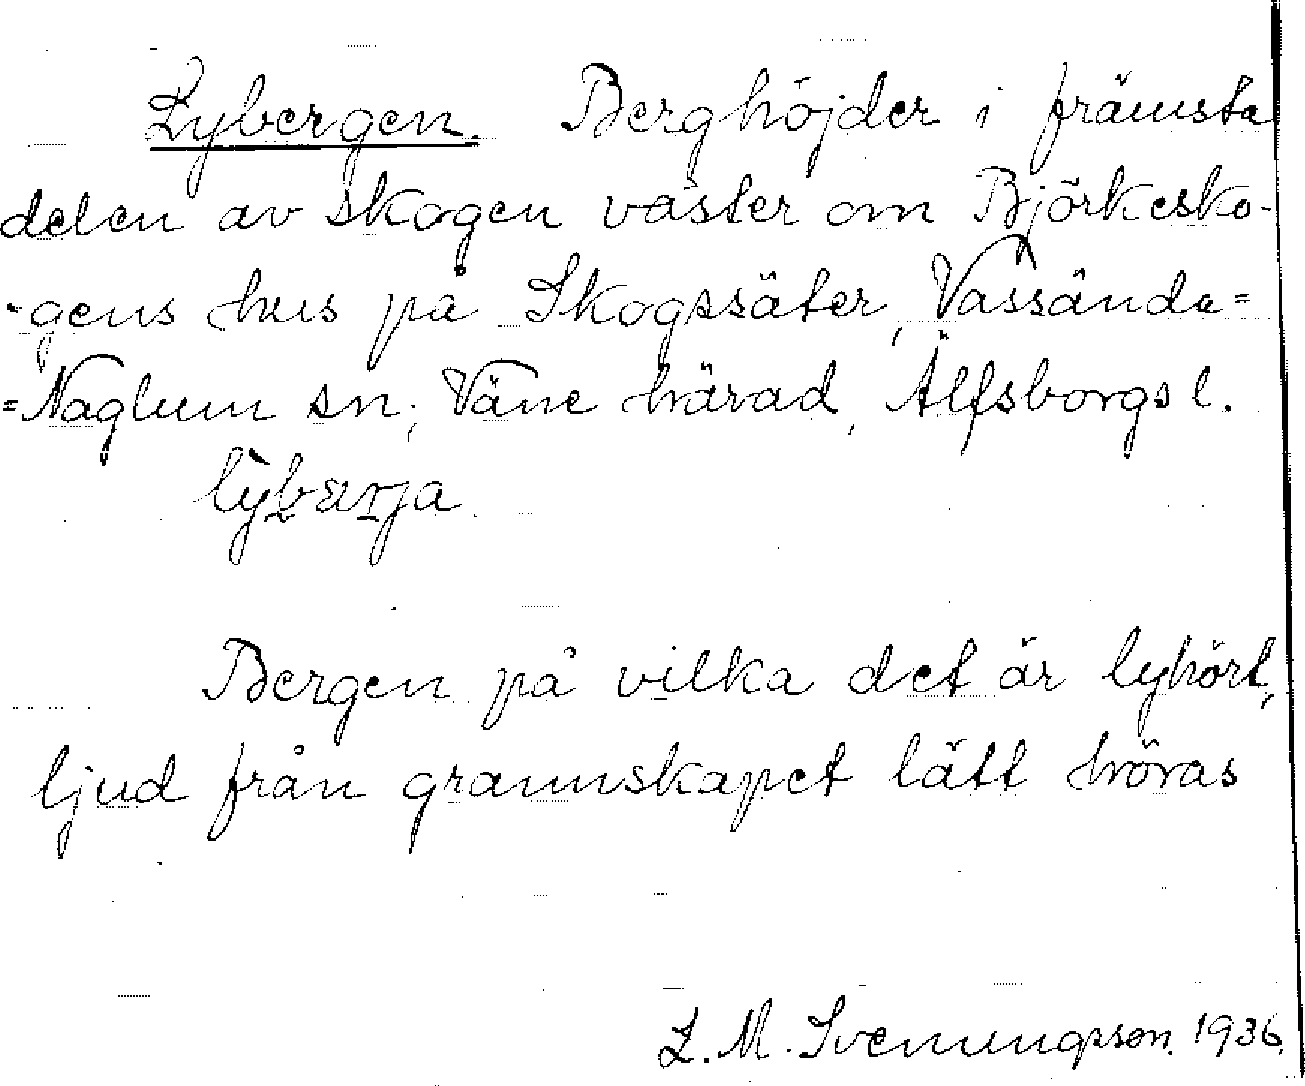 Lybergen. Berghöjder i främsta
delen av skogen väster om Björkesko-
-gens hus på Skogssäter, Vassända=
=Naglum sn, Väne härad, Älfsborgs l.
lỳbærja
Bergen på vilka det är lyhört,
ljud från grannskapet lätt höras
L. M. Svenungsson. 1936.